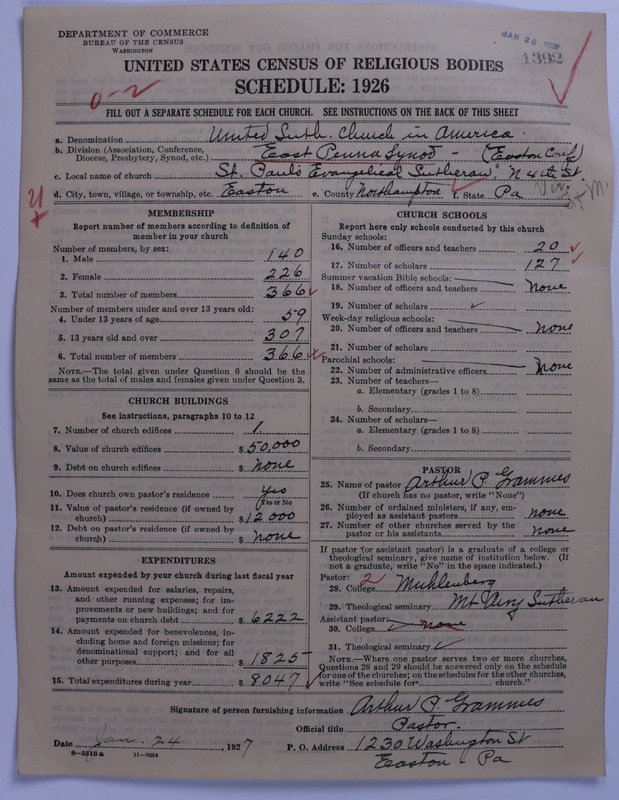 DEPARTMENT OF COMMERCE
BUREAU OF THE CENSUS
WASHINGTON
JAN 26 1927
1392
UNITED STATES CENSUS OF RELIGIOUS BODIES
SCHEDULE: 1926
0-2
FILL OUT A SEPARATE SCHEDULE FOR EACH CHURCH. SEE INSTRUCTIONS ON THE BACK OF THIS SHEET
a. Denomination United Luth. Church in America.
b. Division (Association, Conference, Diocese, Presbytery, Synod, etc.) East Penna Synod - (Easton Conf)
c. Local name of church St. Paul's Evangelical Lutheran, N 4th St
d. City, town, village, or township, etc. Easton e. County Northampton f. State Pa
MEMBERSHIP
Report number of members according to definition of member in your church
Number of members, by sex:
1. Male 140
2. Female 226
3. Total number of members 366
Number of members under and over 13 years old:
4. Under 13 years of age 59
5. 13 years old and over 307
6. Total number of members 366
NOTE.—The total given under Question 6 should be the same as the total of males and females given under Question 3.
CHURCH BUILDINGS
See instructions, paragraphs 10 to 12
7. Number of church edifices 1.
8. Value of church edifices $50,000
9. Debt on church edifices $ none
10. Does church own pastor's residence yes
(Yes or No)
11. Value of pastor's residence (if owned by church) $12000
12. Debt on pastor's residence (if owned by church) $ none
EXPENDITURES
Amount expended by your church during last fiscal year
13. Amount expended for salaries, repairs, and other running expenses; for improvements or new buildings; and for payments on church debt $6222
14. Amount expended for benevolences, including home and foreign missions; for denominational support; and for all other purposes $1825
15. Total expenditures during year $8047
CHURCH SCHOOLS
Report here only schools conducted by this church
Sunday schools:
16. Number of officers and teachers 20
17. Number of scholars 127
Summer vacation Bible schools:
18. Number of officers and teachers None
19. Number of scholars
Week-day religious schools:
20. Number of officers and teachers None
21. Number of scholars
Parochial schools:
22. Number of administrative officers None
23. Number of teachers—
a. Elementary (grades 1 to 8)
b. Secondary
24. Number of scholars—
a. Elementary (grades 1 to 8)
b. Secondary
PASTOR
25. Name of pastor Arthur P. Grammes
(If church has no pastor, write "None")
26. Number of ordained ministers, if any, employed as assistant pastors none
27. Number of other churches served by the pastor or his assistants None
If pastor (or assistant pastor) is a graduate of a college or theological seminary, give name of institution below. (If not a graduate, write "No" in the space indicated.)
Pastor: 2
28. College Muhlenberg
29. Theological seminary Mt Airy Lutheran
Assistant pastor:
30. College none
31. Theological seminary
NOTE.—Where one pastor serves two or more churches, Questions 28 and 29 should be answered only on the schedule for one of the churches; on the schedules for the other churches, write "See schedule for church."
Signature of person furnishing information Arthur P. Grammes
Official title Pastor.
Date Jan. 24, 1927 P. O. Address 1230 Washington St
Easton Pa
8—5518a 11—9034